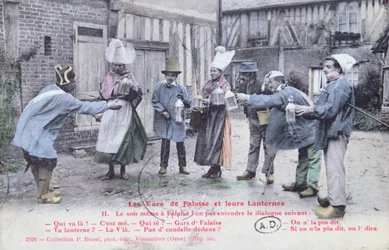 Les Gars de Falaise et leurs Lanternes
II. Le soir même à Falaise l'on put entendre le dialogue suivant :
— Qui va là ? — C'est mé. — Qui té ? — Gars d' Falaise — On n' la puis dit,
— Ta lanterne ? — La V'là. — Pas d' candelle dedans ? — Si on n' la pît dit, on l' dira
A.D.
2020 - Collection P. Bunel, phot.-édit., Vimoutiers (Orne)